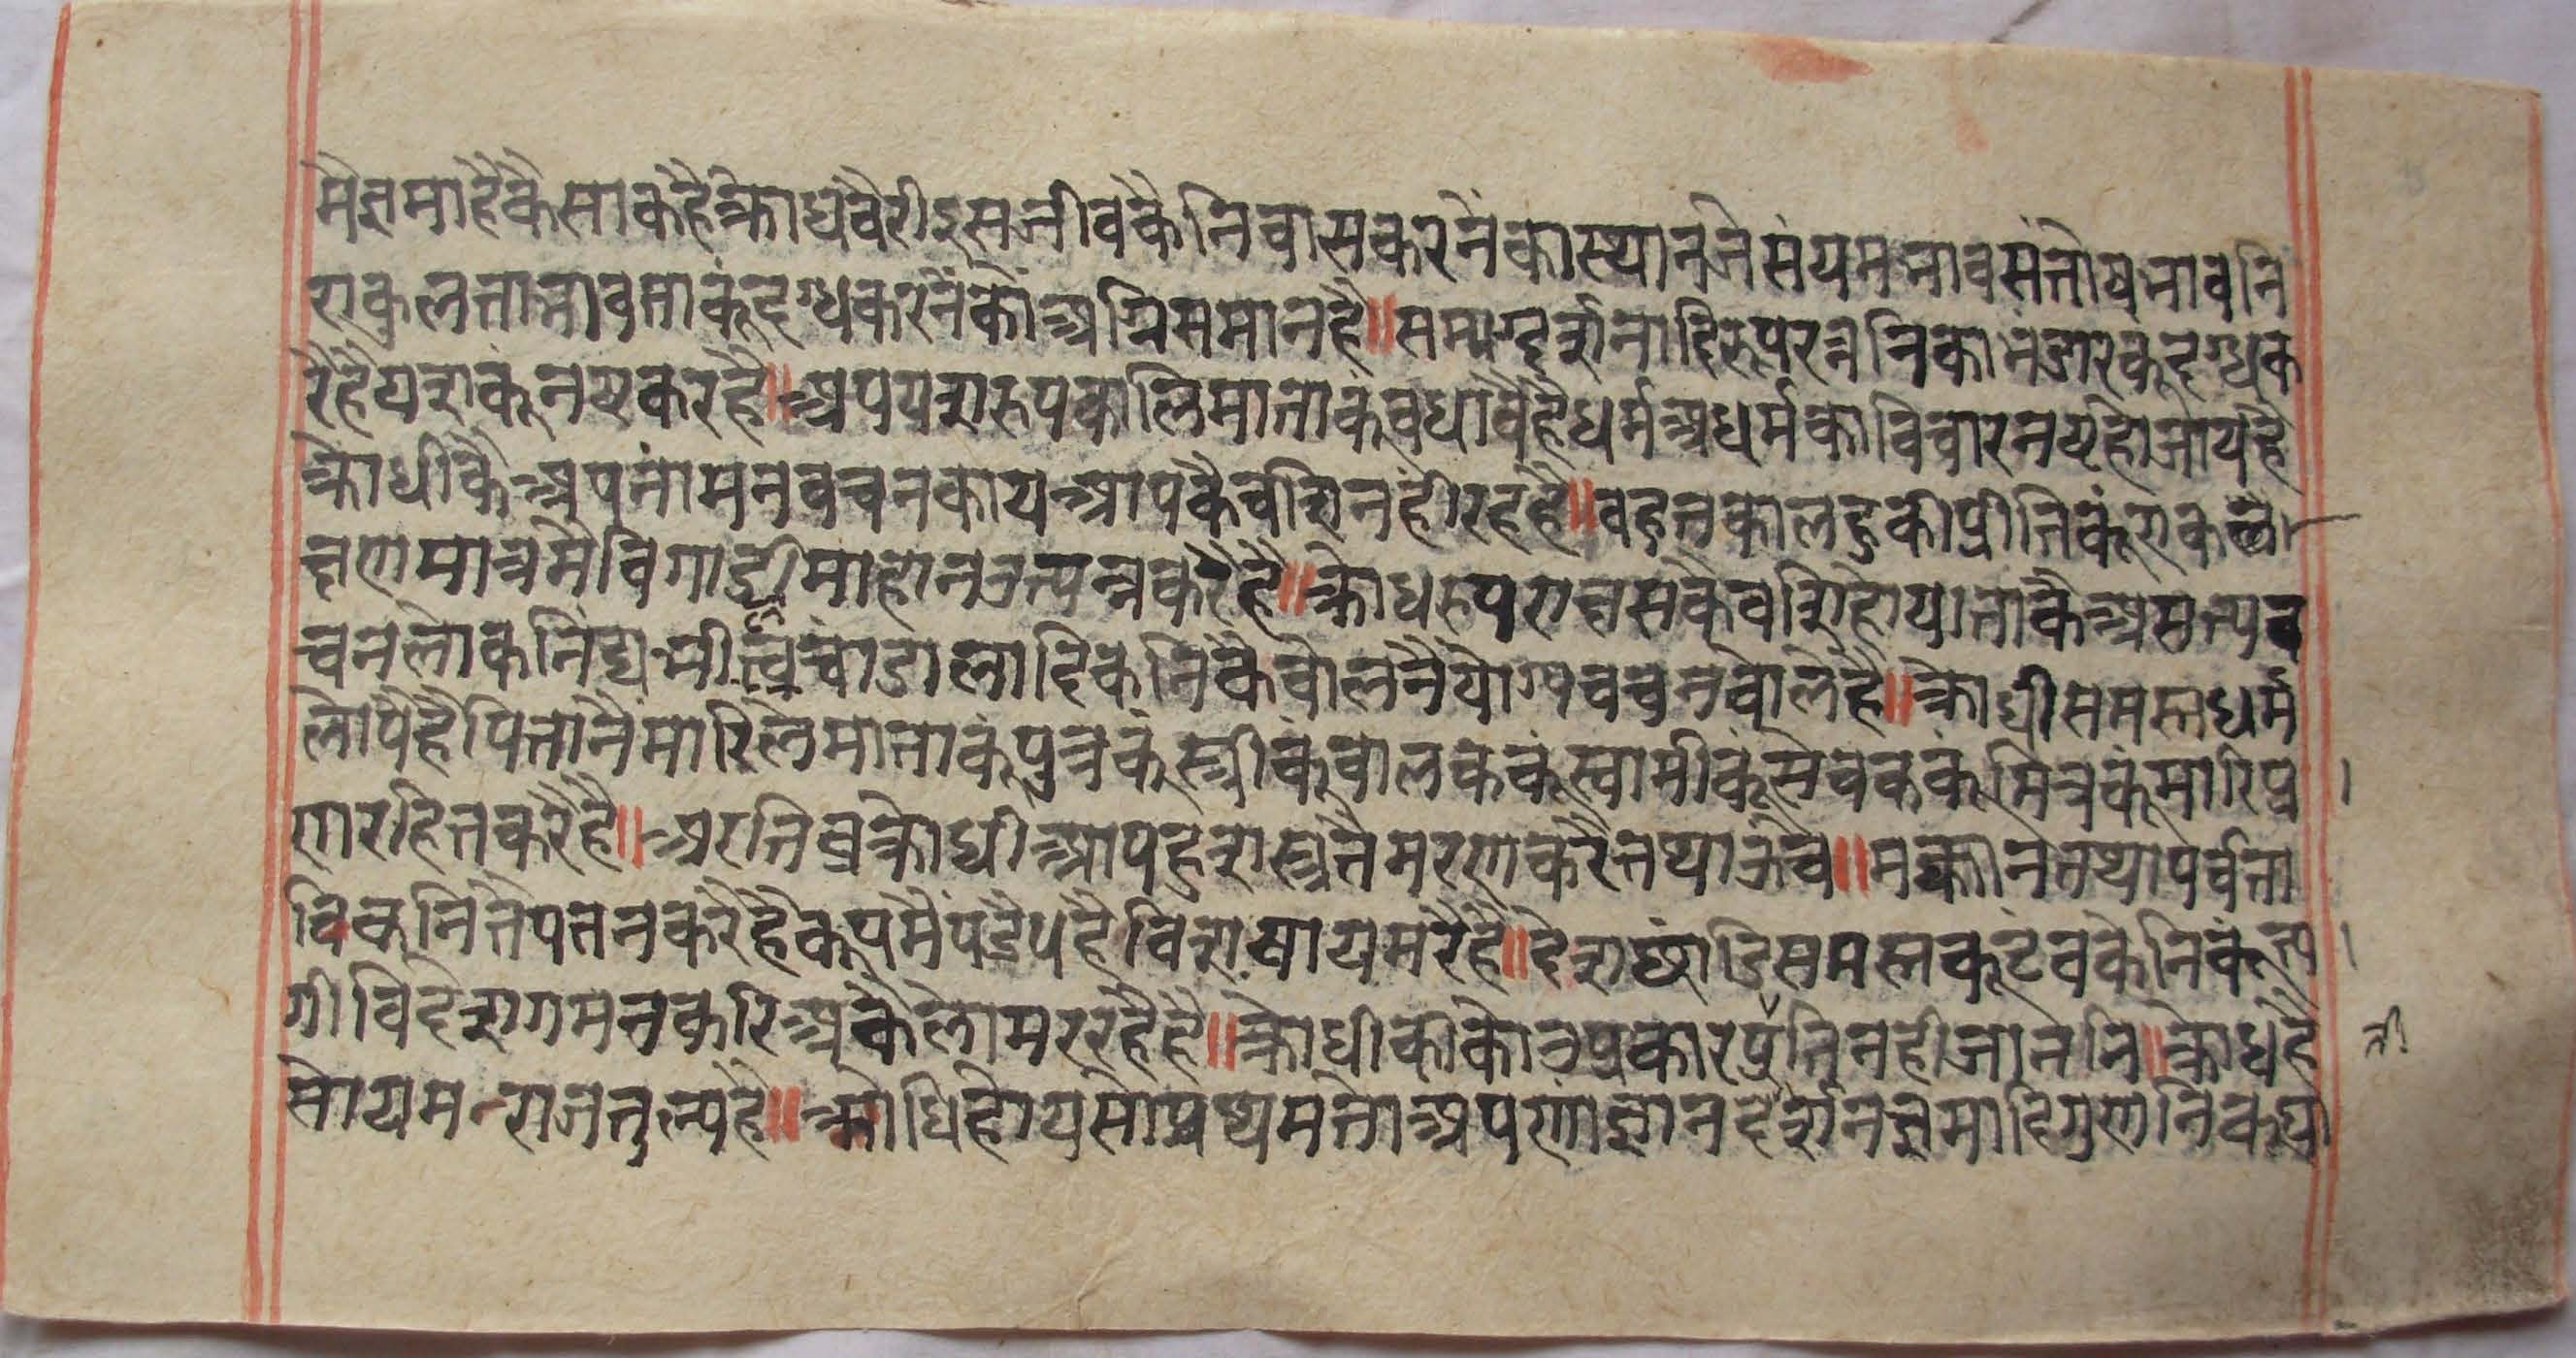 मैक्षमाहैकैसाकहैक्रोधवैरीइसजीवकैनिवासकरनेंकास्थानजेसंयमभावसंतोषभावनि
राकुलताभावताकूंदग्धकरनेंकोंअग्निसमानहै॥सम्यग्दर्शनादिरूपरत्ननिकाभंडारकूंदग्धक
रैहैयशकूंनष्टकरहै॥अपयशरूपकालिमाताकूंवधावैहैधर्मअधर्मकाविचारनष्टहोजायहै
क्रोधीकैअपनांमनवचनकायआपकैवशिनंहीरहहै॥वहुतकालहुकीप्रीतिकूं
क्षणमात्रमैविगाडीमाहानउत्पन्नकरैहै॥क्रोधरूपराक्षसकेवशिहोयताकैअसत्यव
चनलोकनिंद्यभीलचांडालादिकनिकैवोलनैयोग्यवचनवोलेहै॥क्रोधीसमस्तधर्म
लोपैहैपितानैमारिलेमाताकूंपुत्रकूंस्त्रीकूंवालककूंस्वामीकूंसेवककूंमित्रकूंमारिप्रा
णरहितकरैहै॥अरतिव्रक्रोधीआपहुशस्त्रतैमरणकरैतथाऊंच॥मकानतथापर्वता
दिकनितैपतनकरैहैकूपमैपडैपहैविशषायमरैहै॥देशछांडिसमस्तकूटंवकेनिकूंत्य
।
गीविदेशगमनकरिअकेलोमररहैहै॥क्रोधीकीकोउप्रकारप्रतितिनहीजाननि॥क्रोधहै
ती
सोयमराजतुल्यहै॥क्रोधिहोयसोप्रथमतोअपणाज्ञानदर्शनक्षमादिगुणनिकूघा